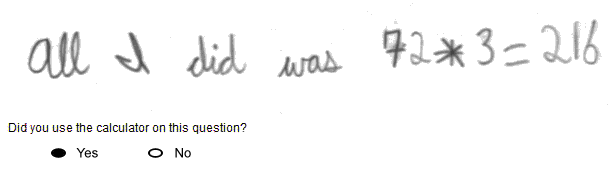 all I did was 72*3=216
Did you use the calculator on this question?
Yes No